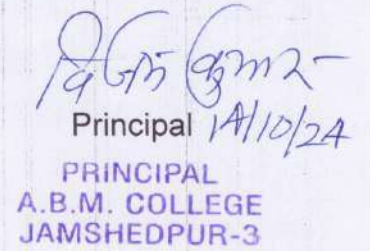 विजय कुमार
Principal 14/10/24
PRINCIPAL
A.B.M. COLLEGE
JAMSHEDPUR-3